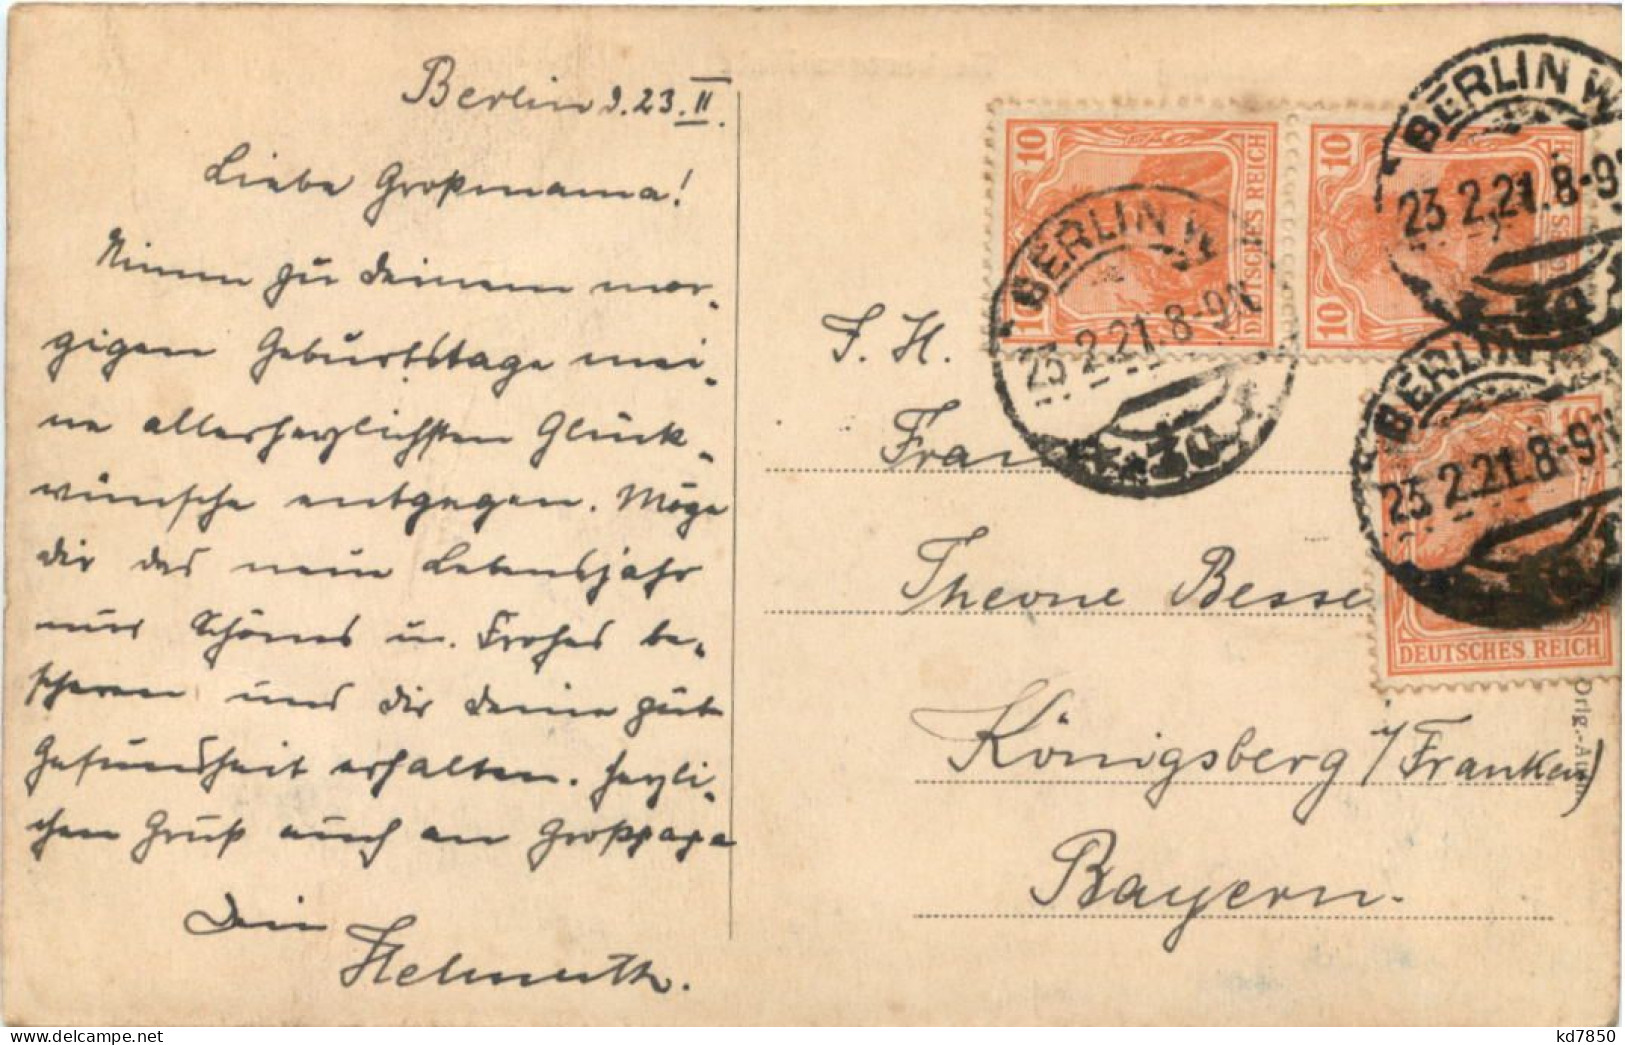 Berlin d. 23. II.
Liebe Großmama!
Nimm zu Deinem mor-
gigen Geburtstage mei-
ne allerherzlichsten Glück-
wünsche entgegen. Möge
dir das neue Lebensjahr
nur Schönes u. Frohes be-
scheren und dir deine gute
Gesundheit erhalten. Herzli-
chen Gruß auch an Großpapa
Dein
Helmuth.
10
10
DEUTSCHES REICH
10
10
BERLIN W
23 2.21. 8-9N
30
BERLIN W
23 2.21. 8-9N
30
BERLIN W
23 2.21. 8-9N
10
DEUTSCHES REICH
S. H.
Frau
Theone Besse
Königsberg i/Franken)
Bayern.
delcampe.net
kd7850